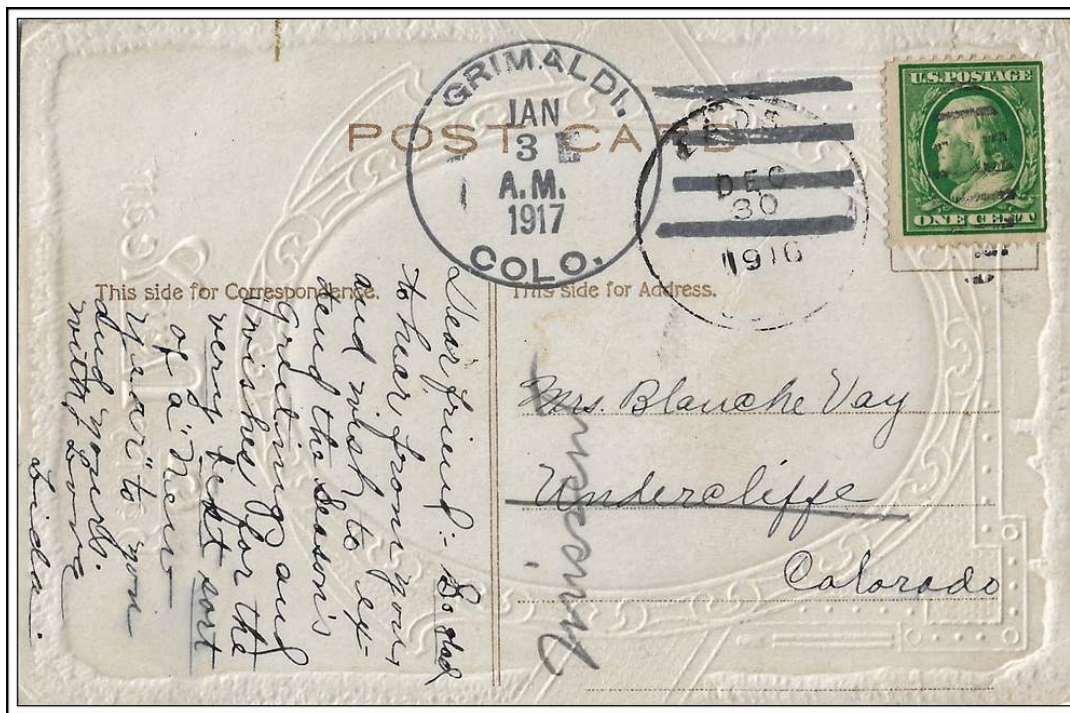 GRIMALDI.
JAN
3
A.M.
1917
COLO.
POST CARD
EADS
DEC
30
1916
U.S. POSTAGE
ONE CENT
This side for Correspondence.
This side for Address.
Dear friend:- So glad
to hear from you,
and wish to ex-
tend the Season's
Greetings and
wishes for the
very best sort
of a "New
Year" to you
and yours.
with Love
Lida.
Mrs. Blanche Vay
Undercliffe
Colorado
Missent